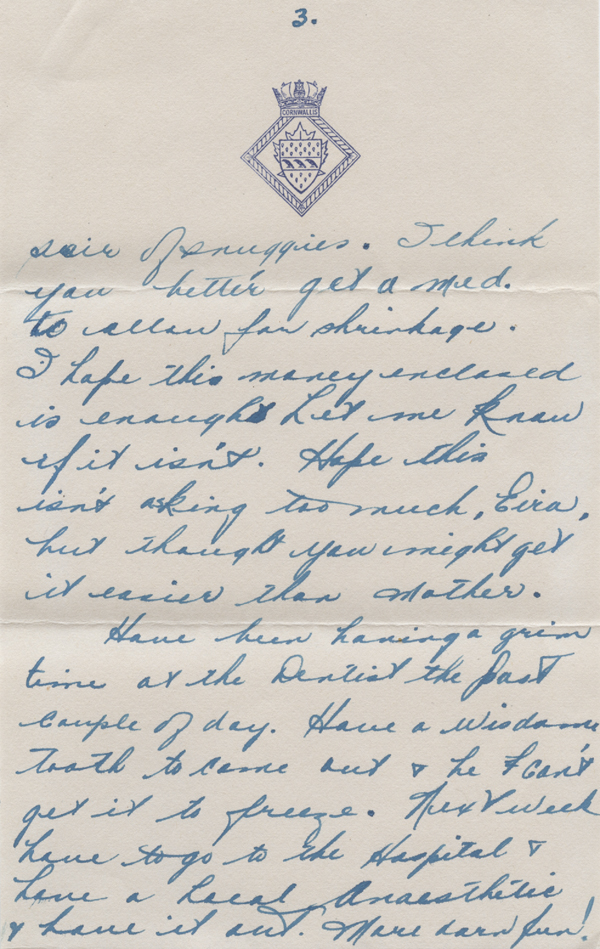 3.
CORNWALLIS
pair of snuggies. I think
you better get a med.
to allow for shrinkage.
I hope this money enclosed
is enough Let me know
if it isn't. Hope this
isn't asking too much, Eira,
but thought you might get
it easier than Mother.
Have been having a grim
time at the Dentist the past
couple of day. Have a wisdom
tooth to come out & he can't
get it to freeze. Next week
have to go to the Hospital &
have a local Anaesthetic
& have it out. More darn fun!